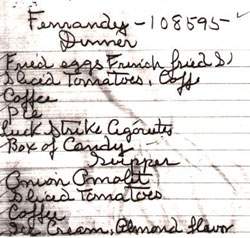 Fernandy - 108595-
Dinner
Fried eggs French fried S)
Sliced Tomatoes, Coffe
Coffee
Pie
Luck Strike Cigaretes
Box of Candy
Supper
Onion Omalit
Sliced Tomatoes
Coffee
Ice Cream, Almond flavor